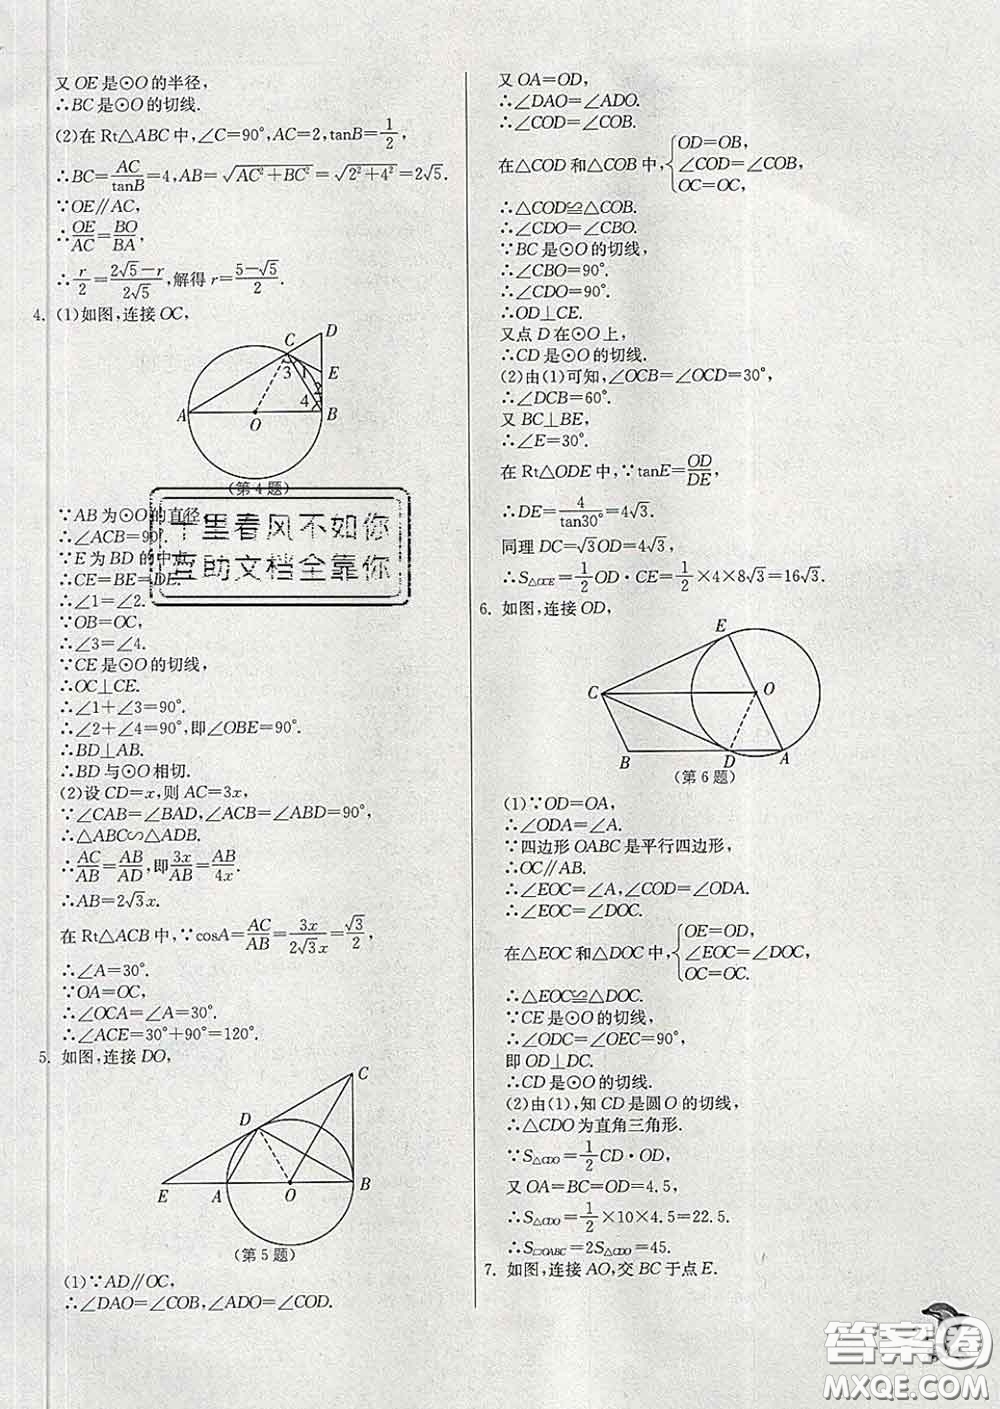 又OE是⊙O的半径,
∴BC是⊙O的切线.
(2)在Rt△ABC中,∠C=90°,AC=2,tanB=1/2,
∴BC=AC/tanB=4,AB=√(AC²+BC²)=√(2²+4²)=2√5.
∵OE∥AC,
∴OE/AC=BO/BA,
∴r/2=(2√5-r)/(2√5),解得r=(5-√5)/2.
4. (1)如图,连接OC,
D
C
E
3 1
2
4
A
O
B
(第4题)
∵AB为⊙O的直径,
∴∠ACB=90°.
∵E为BD的中点,
∴CE=BE=DE.
∴∠1=∠2.
∵OB=OC,
∴∠3=∠4.
∵CE是⊙O的切线,
∴OC⊥CE.
∴∠1+∠3=90°.
∴∠2+∠4=90°,即∠OBE=90°.
∴BD⊥AB.
∴BD与⊙O相切.
(2)设CD=x,则AC=3x,
∵∠CAB=∠BAD,∠ACB=∠ABD=90°,
∴△ABC∽△ADB.
∴AC/AB=AB/AD,即3x/AB=AB/4x.
∴AB=2√3x.
在Rt△ACB中,∵cosA=AC/AB=3x/(2√3x)=√3/2,
∴∠A=30°.
∵OA=OC,
∴∠OCA=∠A=30°.
∴∠ACE=30°+90°=120°.
5. 如图,连接DO,
C
D
E
A
O
B
(第5题)
(1)∵AD∥OC,
∴∠DAO=∠COB,∠ADO=∠COD.
千里春风不如你
互助文档全靠你
又OA=OD,
∴∠DAO=∠ADO.
∴∠COD=∠COB.
在△COD和△COB中,{OD=OB, ∠COD=∠COB, OC=OC,
∴△COD≌△COB.
∴∠CDO=∠CBO.
∵BC是⊙O的切线,
∴∠CBO=90°.
∴∠CDO=90°.
∴OD⊥CE.
又点D在⊙O上,
∴CD是⊙O的切线.
(2)由(1)可知,∠OCB=∠OCD=30°,
∴∠DCB=60°.
又BC⊥BE,
∴∠E=30°.
在Rt△ODE中,∵tanE=OD/DE,
∴DE=4/tan30°=4√3.
同理DC=√3OD=4√3.
∴S△OCE=1/2OD·CE=1/2×4×8√3=16√3.
6. 如图,连接OD,
E
C
O
B
D
A
(第6题)
(1)∵OD=OA,
∴∠ODA=∠A.
∵四边形OABC是平行四边形,
∴OC∥AB.
∴∠EOC=∠A,∠COD=∠ODA.
∴∠EOC=∠DOC.
在△EOC和△DOC中,{OE=OD, ∠EOC=∠DOC, OC=OC.
∴△EOC≌△DOC.
∵CE是⊙O的切线,
∴∠ODC=∠OEC=90°,
即OD⊥DC.
∴CD是⊙O的切线.
(2)由(1),知CD是圆O的切线,
∴△CDO为直角三角形.
∵S△CDO=1/2CD·OD,
又OA=BC=OD=4.5,
∴S△CDO=1/2×10×4.5=22.5.
∴S□OABC=2S△CDO=45.
7. 如图,连接AO,交BC于点E.
答案圈
MXQE.COM